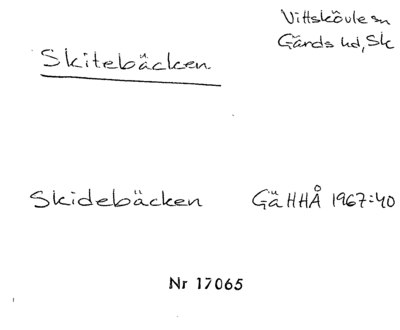 Vittskövle sn
Gärds hd, Sk
Skitebäcken
Skidebäcken GäHHÅ 1967:40
Nr 17065